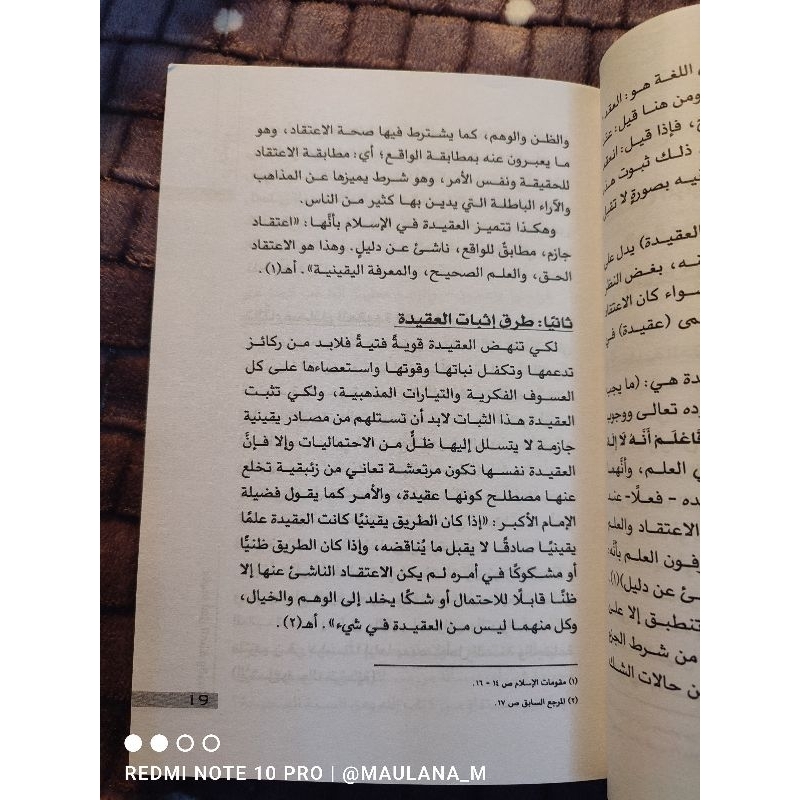 والظن والوهم، كما يشترط فيها صحة الاعتقاد، وهو
ما يعبرون عنه بمطابقة الواقع؛ أي: مطابقة الاعتقاد
للحقيقة ونفس الأمر، وهو شرط يميزها عن المذاهب
والآراء الباطلة التي يدين بها كثير من الناس.
وهكذا تتميز العقيدة في الإسلام بأنَّها: «اعتقاد
جازم، مطابقٌ للواقع، ناشئ عن دليلٍ. وهذا هو الاعتقاد
الحق، والعلم الصحيح، والمعرفة اليقينية». أهـ(١).
ثانيًا: طرق إثبات العقيدة
لكي تنهض العقيدة قويةً فتيةً فلابد من ركائز
تدعمها وتكفل نباتها وقوتها واستعصاءها على كل
العسوف الفكرية والتيارات المذهبية، ولكي تثبت
العقيدة هذا الثبات لابد أن تستلهم من مصادر يقينية
جازمة لا يتسلل إليها ظلٌّ من الاحتماليات وإلا فإنَّ
العقيدة نفسها تكون مرتعشة تعاني من زئبقية تخلع
عنها مصطلح كونها عقيدة، والأمر كما يقول فضيلة
الإمام الأكبر: «إذا كان الطريق يقينيًا كانت العقيدة علمًا
يقينيًا صادقًا لا يقبل ما يُناقضه، وإذا كان الطريق ظنيًّا
أو مشكوكًا في أمره لم يكن الاعتقاد الناشئ عنها إلا
ظنًا قابلًا للاحتمال أو شكًا يخلد إلى الوهم والخيال،
وكل منهما ليس من العقيدة في شيء». أهـ(٢).
(١) مقومات الإسلام ص ١٤ - ١٦.
(٢) المرجع السابق ص ١٧.
١٩
اللغة هو: العقد
ومن هنا قيل:
فإذا قيل:
ذلك ثبوت
بصورةٍ لا
العقيدة) يدل على
بغض النظر
سواء كان الاعتقاد
(عقيدة) في
هي: (ما يجب
تعالى ووجوب
فَاعْلَمْ أَنَّهُ لَا إِلَهَ
في العلم، وأنهما
- فعلًا - عند
الاعتقاد والعلم
العلم بأنَّه
عن دليل)(١).
تنطبق إلا على
من شرط الجزم
من حالات الشك
REDMI NOTE 10 PRO | @MAULANA_M